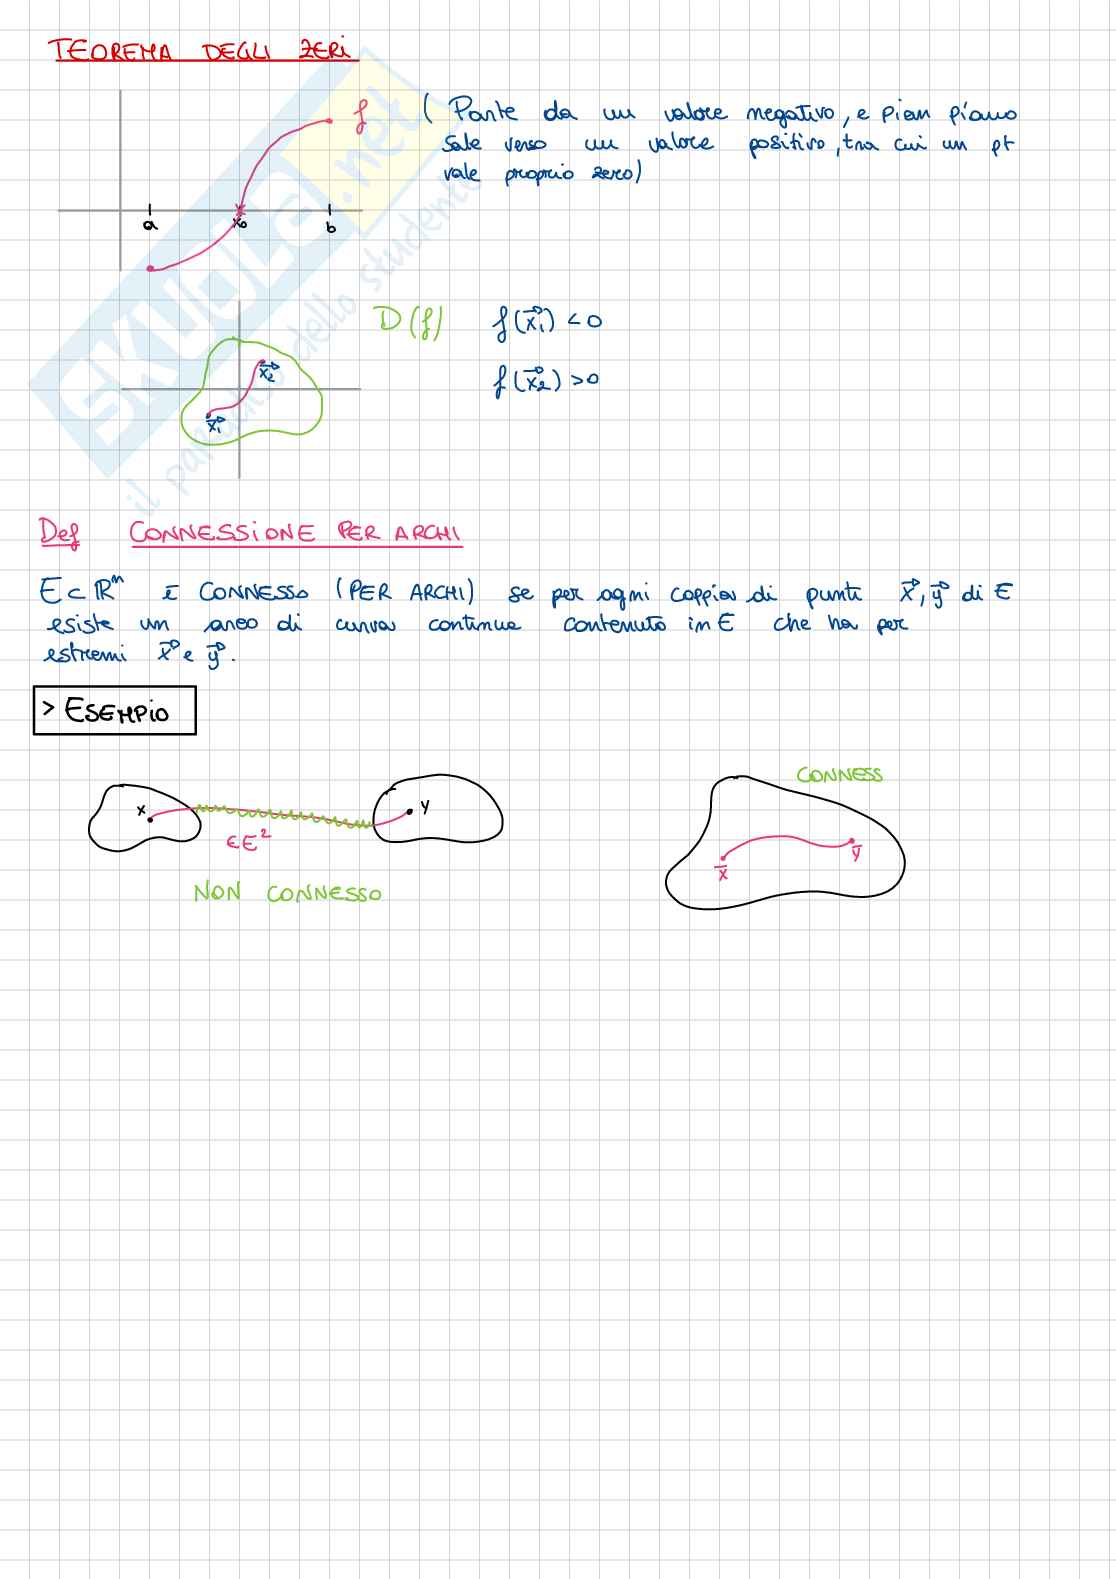 TEOREMA DEGLI ZERI
f
( Parte da un valore negativo, e pian piano
sale verso un valore positivo, tra cui un pt
vale proprio zero)
a
x₀
b
D(f)
f(x⃗₁) < 0
x⃗₂
f(x⃗₂) > 0
x⃗₁
SKUOLA.net
il paradiso dello studente
Def CONNESSIONE PER ARCHI
E ⊂ ℝⁿ È CONNESSO (PER ARCHI) se per ogni coppia di punti x⃗, y⃗ di E
esiste un arco di curva continua contenuto in E che ha per
estremi x⃗ e y⃗.
> ESEMPIO
CONNESS
x
y
∈E²
x
y
NON CONNESSO